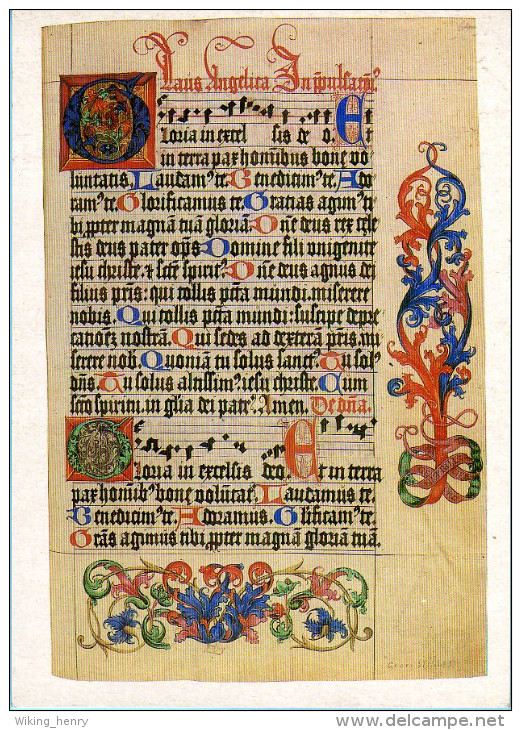 Laus Angelica In
Gloria in excel sis de o. Et
in terra pax hominibus bone vo
luntatis. Laudam⁹ te. Benedicim⁹ te. Ado
ram⁹ te. Glorificamus te. Gratias agim⁹ ti
bi ꝓpter magnā tuā gloriā. Dn̄e deus rex cele
stis deus pater oīps. Domine fili unigenite
iesu christe, & sctē spirit⁹. Dn̄e deus agnus dei
filius pr̄is: qui tollis pctā mundi: miserere
nobis. Qui tollis pctā mundi: suscipe depre
cationē nostrā. Qui sedes ad dexterā pr̄is, mi
serere nob. Quoniā tu solus sanct⁹. Tu sol⁹
dn̄s. Tu solus altissim⁹: iesu christe. Cum
sctō spiritu, in glīa dei patr̄. Amen. De dn̄a.
Gloria in excelsis deo. Et in terra
pax homīb⁹ bone volūtat̄. Laudamus te.
Benedicim⁹ te. Adoramus. Glīficam⁹ te.
Grās agimus tibi ꝓpter magnā gloriā tuā.
Wiking_henry
www.delcampe.net